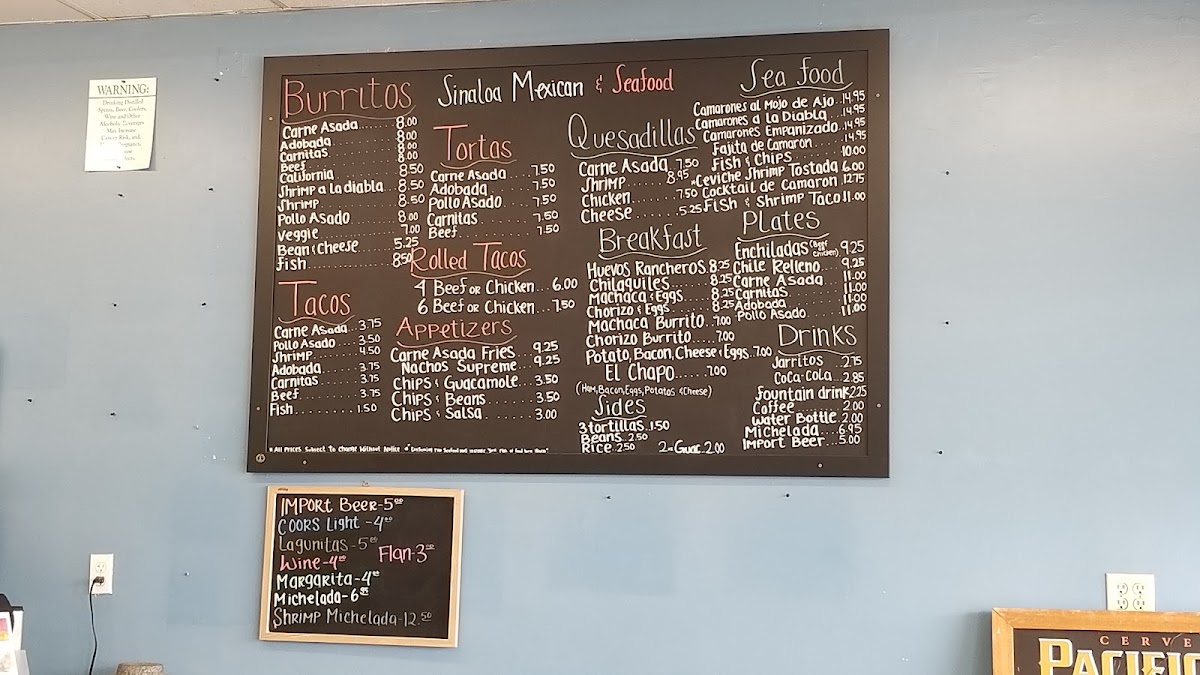 WARNING:
Drinking Distilled
Spirits, Beer, Coolers,
Wine and Other
Alcoholic Beverages
May Increase
Cancer Risk, and,
Sinaloa Mexican & Seafood
Burritos
Carne Asada...... 8.00
Adobada 8.00
Carnitas 8.00
Beef 8.00
California 8.50
Shrimp a la diabla 8.50
Shrimp 8.50
Pollo Asado 8.00
Veggie 7.00
Bean & Cheese 5.25
Fish 8.50
Tacos
Carne Asada.. 3.75
Pollo Asado... 3.50
Shrimp 4.50
Adobada 3.75
Carnitas 3.75
Beef 3.75
Fish 1.50
Tortas
Carne Asada 7.50
Adobada 7.50
Pollo Asado 7.50
Carnitas 7.50
Beef 7.50
Rolled Tacos
4 Beef or Chicken... 6.00
6 Beef or Chicken... 7.50
Appetizers
Carne Asada Fries... 9.25
Nachos Supreme... 9.25
Chips & Guacamole... 3.50
Chips & Beans 3.50
Chips & Salsa 3.00
Quesadillas
Carne Asada 7.50
Shrimp 8.95
Chicken 7.50
Cheese 5.25
Breakfast
Huevos Rancheros 8.25
Chilaquiles 8.25
Machaca & Eggs 8.25
Chorizo & Eggs 8.25
Machaca Burrito..7.00
Chorizo Burrito.....7.00
Potato, Bacon, Cheese & Eggs..7.00
El Chapo 7.00
(Ham, Bacon, Eggs, Potatos & Cheese)
Sides
3 tortillas..1.50
Beans..2.50
Rice..2.50
Guac..2.00
Sea food
Camarones al Mojo de Ajo..14.95
Camarones a la Diabla...14.95
Camarones Empanizado..14.95
Fajita de Camaron 14.95
Fish & Chips 10.00
Ceviche Shrimp Tostada 6.00
Cocktail de Camaron 12.75
Fish & Shrimp Taco 11.00
Plates
Enchiladas (Beef or Chicken) 9.25
Chile Relleno... 9.25
Carne Asada 11.00
Carnitas 11.00
Adobada 11.00
Pollo Asado 11.00
Drinks
Jarritos 2.75
Coca-Cola...2.85
Fountain drink 2.25
Coffee 2.00
Water Bottle..2.00
Michelada 6.95
Import Beer...5.00
All Prices Subject to Change Without Notice
IMPORT Beer-5.00
COORS Light -4.00
Lagunitas-5.00
Wine-4.00
Flan-3.00
Margarita-4.00
Michelada-6.95
SHRIMP Michelada-12.50
CERVE
PACIFIC